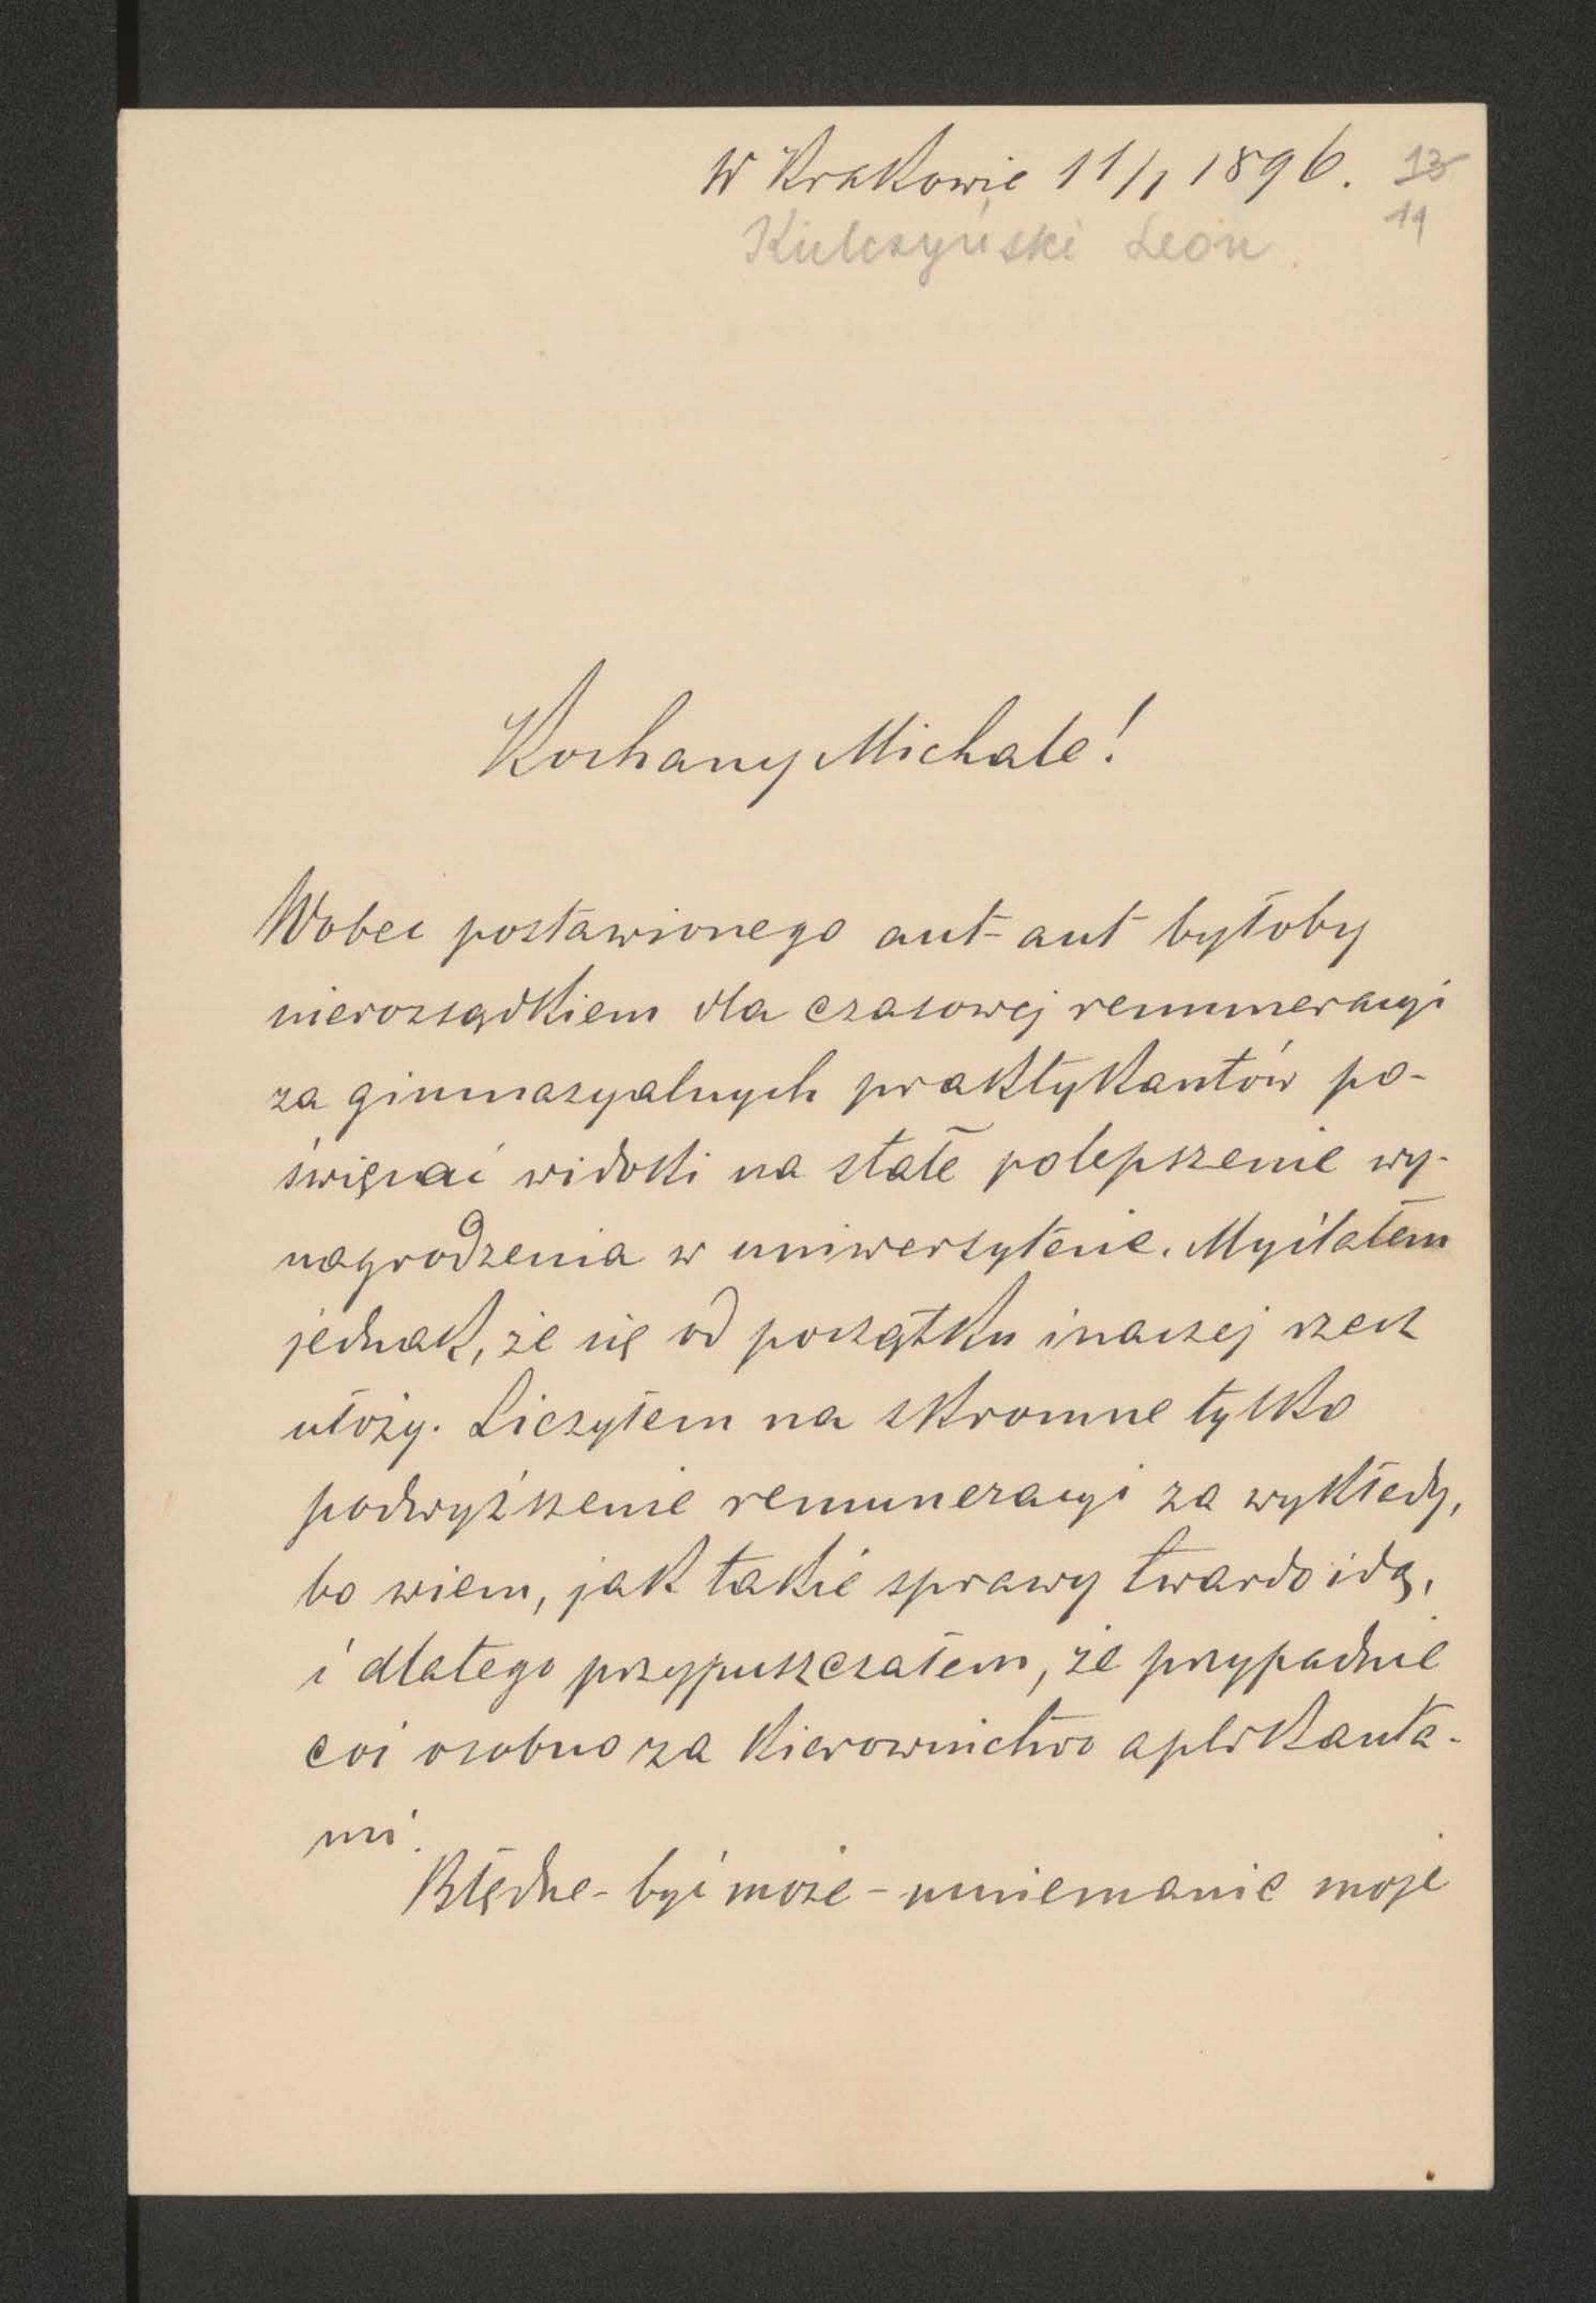 W Krakowie 11/1 1896. 13
11
Kulczyński Leon.
Kochany Michale!
Wobec postawionego aut-aut byłoby
nierozsądkiem dla czasowej remuneracyi
za gimnazyalnych praktykantów po-
święcać widoki na stałe polepszenie wy-
nagrodzenia w uniwersytecie. Myślałem
jednak, że się od początku inaczej rzecz
ułoży. Liczyłem na skromne tylko
podwyższenie remuneracyi za wykłady,
bo wiem, jak takie sprawy twardo idą,
i dlatego przypuszczałem, że przypadnie
coś osobno za kierownictwo aplikanta-
mi.
Błędne - być może - mniemanie moje